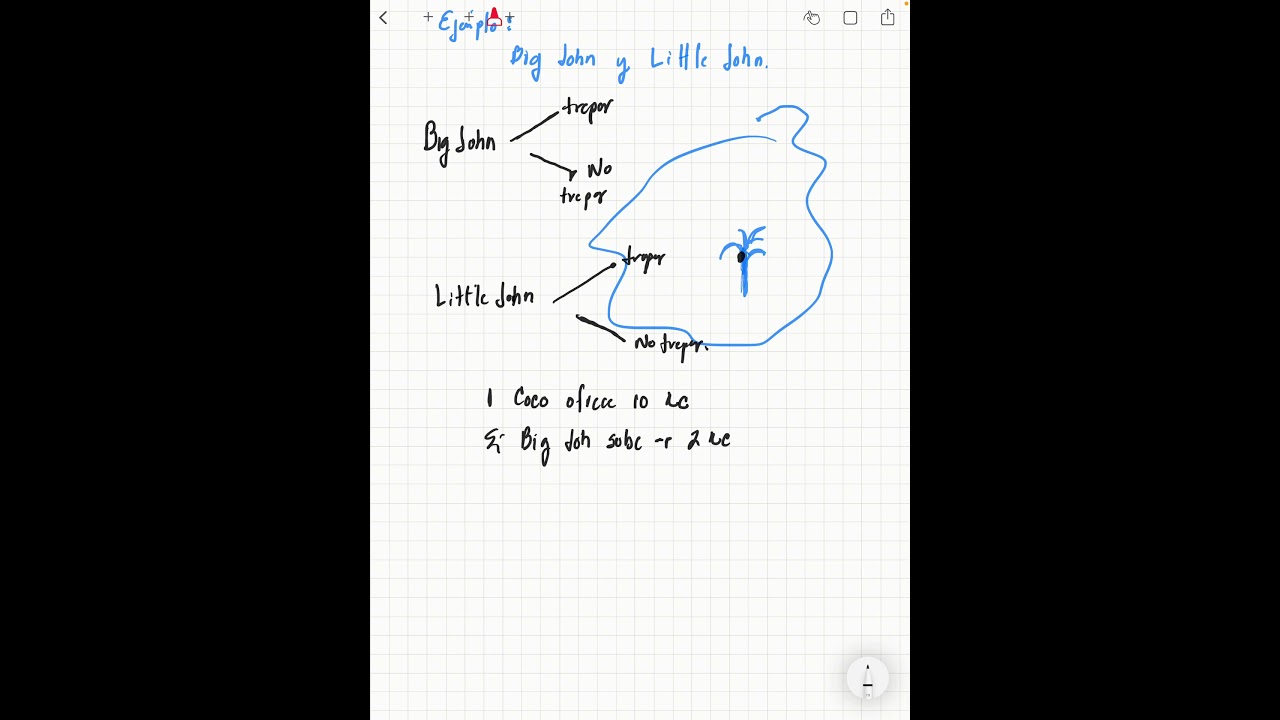 Ejemplo:
Big John y Little John.
Big John
trepar
No
trepar
Little John
trepar
No trepar.
1 Coco ofrece 10 uc
Si Big Joh sube → 2 uc